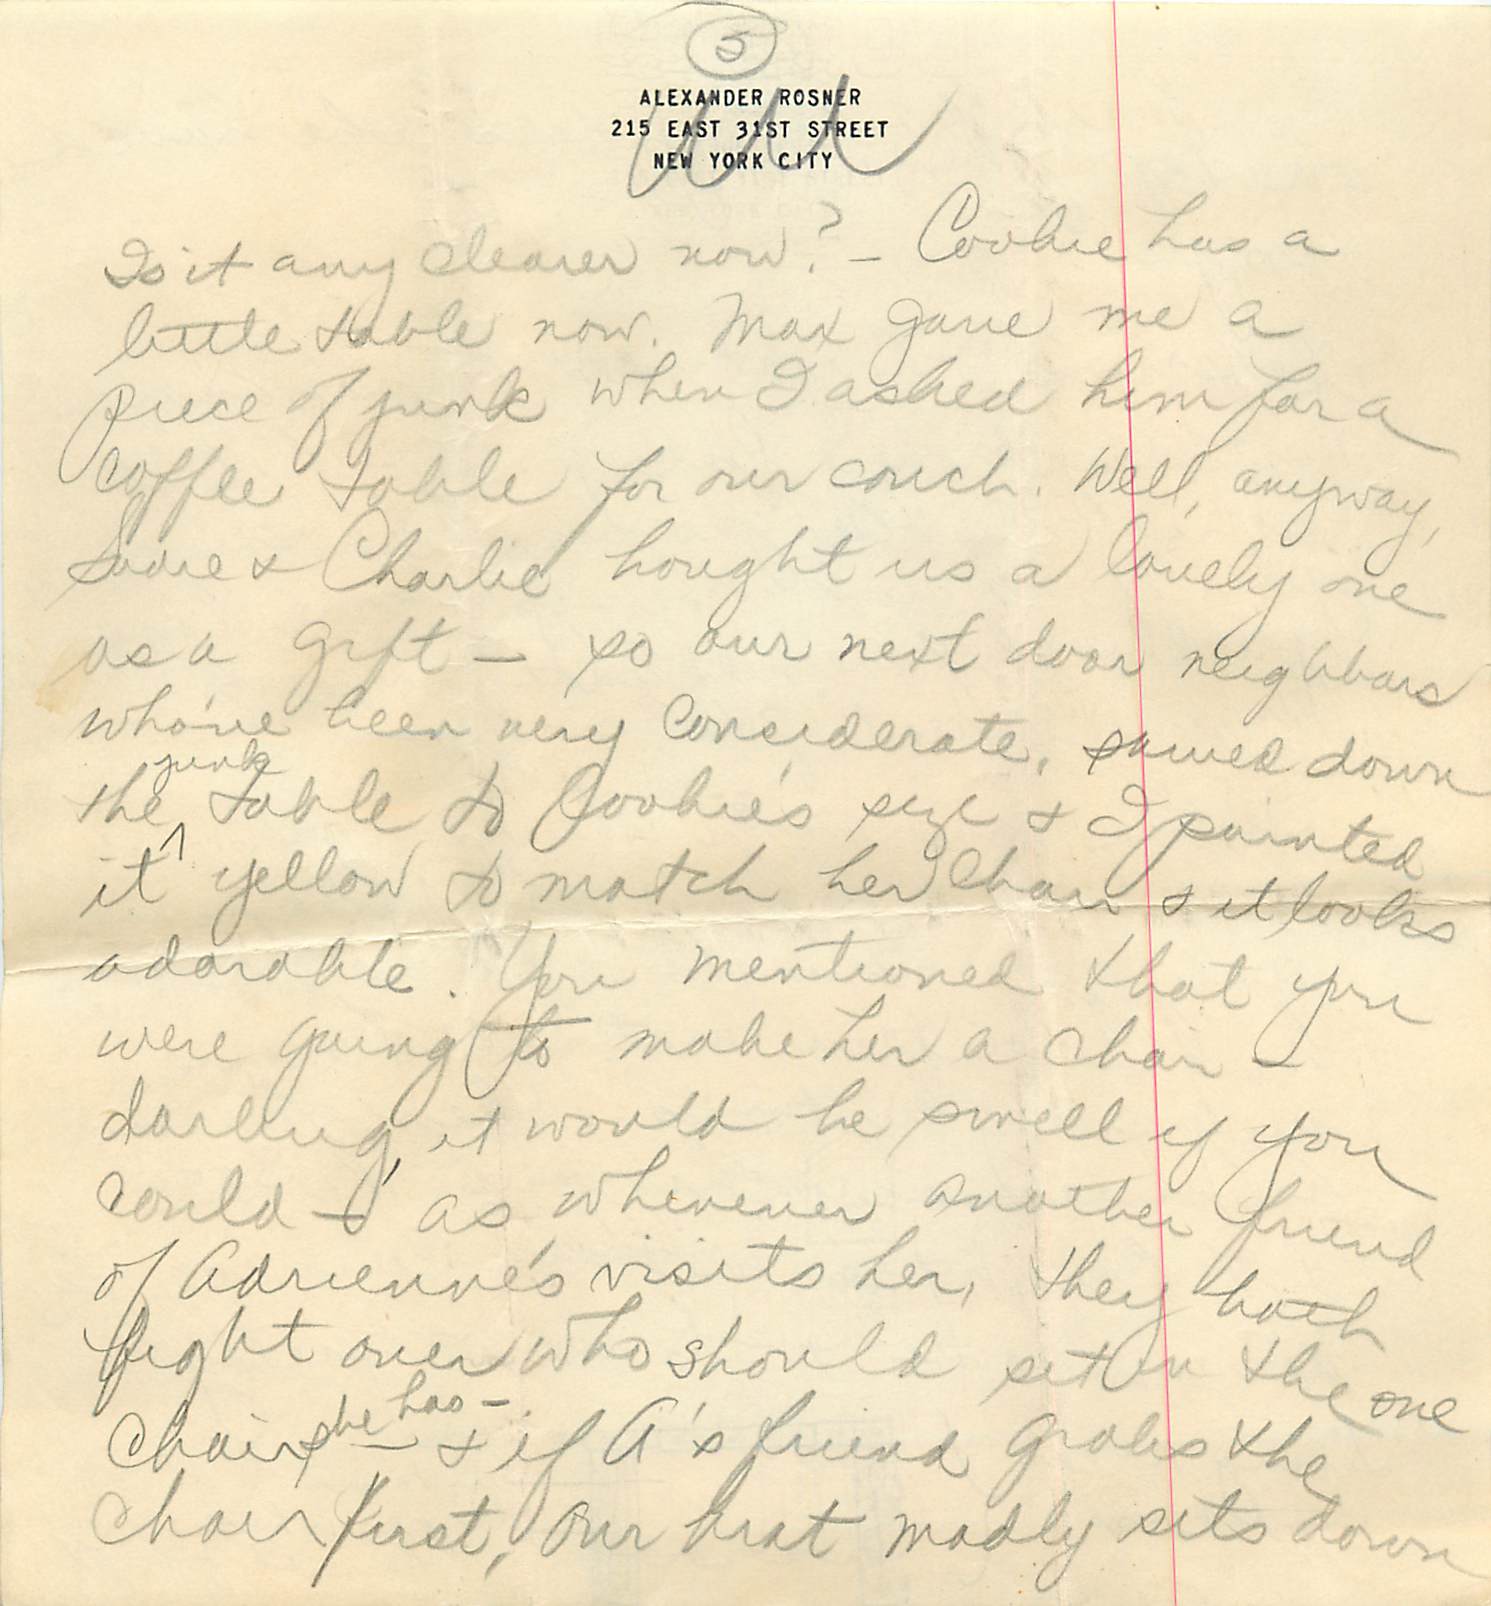 5
ALEXANDER ROSNER
215 EAST 31ST STREET
NEW YORK CITY
Is it any clearer now? – Cookie has a
little table now. Max gave me a
piece of junk when I asked him for a
coffee table for our couch. Well, anyway,
Sadie & Charlie bought us a lovely one
as a gift – so our next door neighbors
who've been very considerate, sawed down
the junk table to Cookie's size & I painted
it yellow to match her chair & it looks
adorable. You mentioned that you
were going to make her a chair –
darling, it would be swell if you
could – as whenever another friend
of Adrienne's visits her, they both
fight over who should sit in the one
chair she has – & if A's friend grabs the
chair first, our brat madly sits down